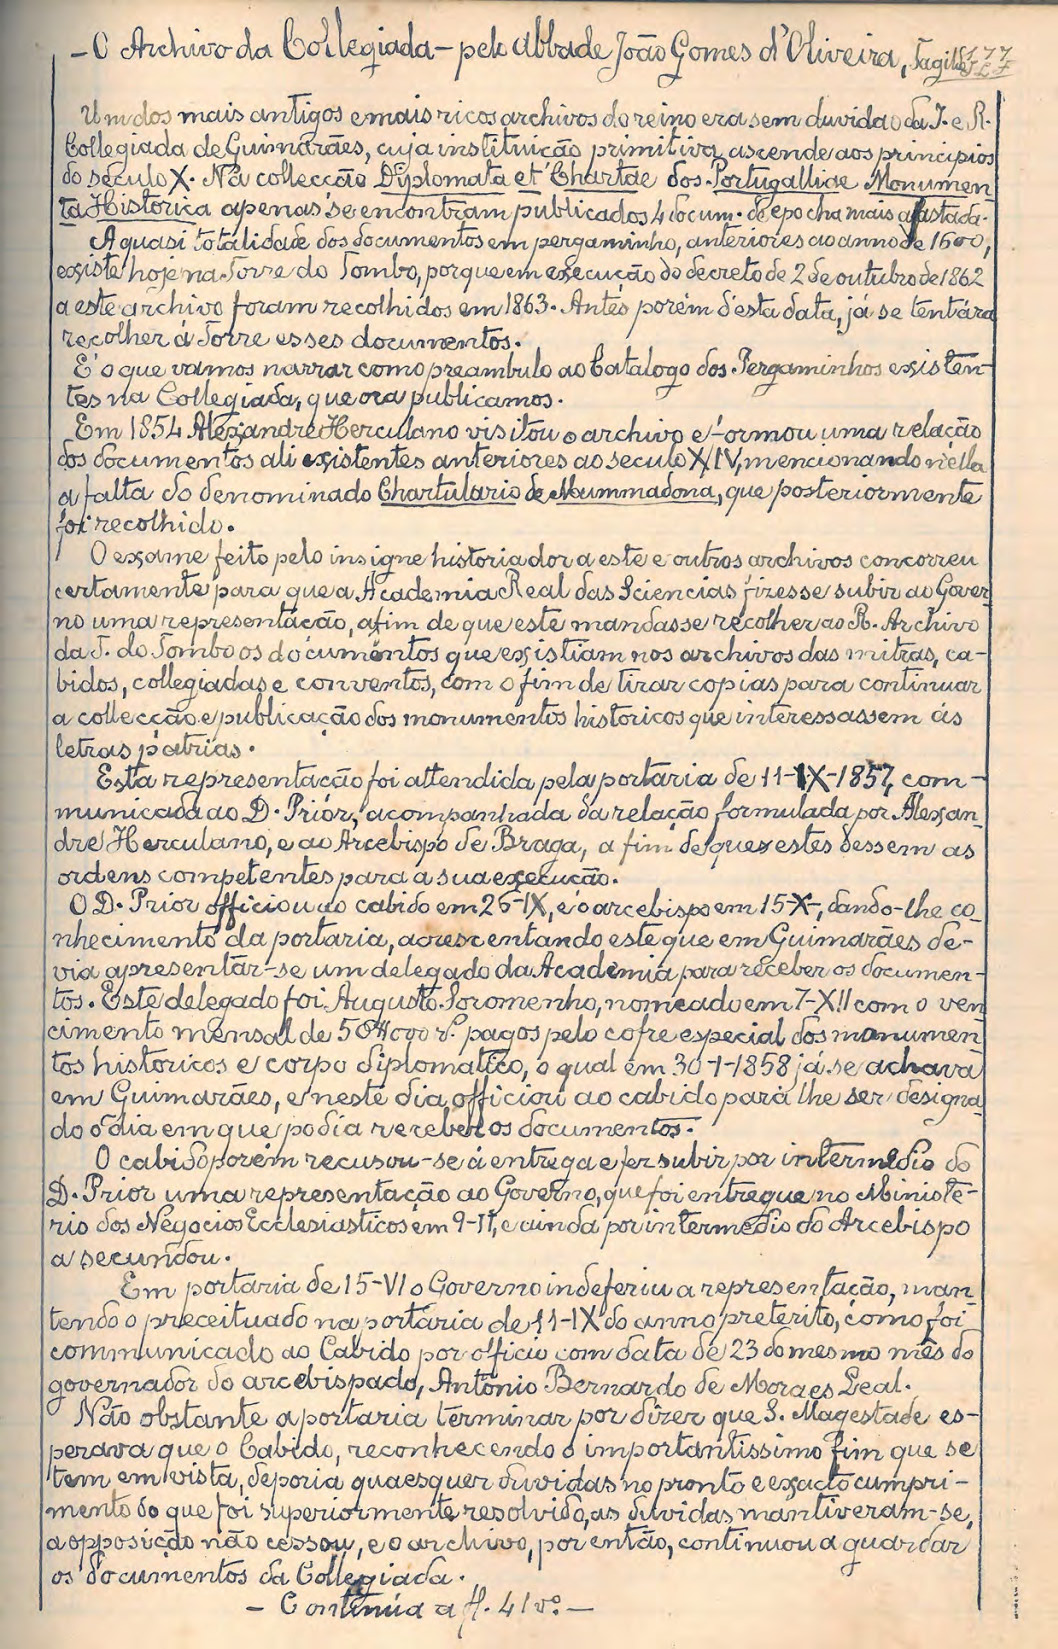 – O Archivo da Collegiada – pelo Abbade João Gomes d'Oliveira, Tagilde
Um dos mais antigos e mais ricos archivos do reino era sem duvida o da I. e R.
Collegiada de Guimarães, cuja instituição primitiva ascende aos principios
do seculo X. Na collecção Diplomata et Chartae dos Portugalliae Monumen
ta Historica apenas se encontram publicados 4 docum. de epocha mais afastada.
A quasi totalidade dos documentos em pergaminho, anteriores ao anno de 1600,
existe hoje na Torre do Tombo, porque em execução do decreto de 2 de outubro de 1862
a este archivo foram recolhidos em 1863. Antes porém d'esta data, já se tentára
recolher á Torre esses documentos.
E' o que vamos narrar como preambulo ao Catalogo dos Pergaminhos existen-
tes na Collegiada, que ora publicamos.
Em 1854 Alexandre Herculano visitou o archivo e formou uma relação
dos documentos ali existentes anteriores ao seculo XIV, mencionando n'ella
a falta do denominado Chartulario de Mummadona, que posteriormente
foi recolhido.
O exame feito pelo insigne historiador a este e outros archivos concorreu
certamente para que a Academia Real das Sciencias fizesse subir ao Gover
no uma representação, afim de que este mandasse recolher ao R. Archivo
da T. do Tombo os documentos que existiam nos archivos das mitras, ca-
bidos, collegiadas e conventos, com o fim de tirar copias para continuar
a collecção e publicação dos monumentos historicos que interessassem ás
letras pátrias.
Esta representação foi attendida pela portaria de 11-IX-1857, com-
municada ao D. Prior, acompanhada da relação formulada por Alexan_
dre Herculano, e ao Arcebispo de Braga, a fim de que estes dessem as
ordens competentes para a sua execução.
O D. Prior officiou ao cabido em 26-IX, e o arcebispo em 15-X-, dando-lhe co_
nhecimento da portaria, acrescentando este que em Guimarães de-
via apresentar-se um delegado da Academia para receber os documen-
tos. Este delegado foi Augusto Soromenho, nomeado em 7-XII com o ven
cimento mensal de 50#000 r.s pagos pelo cofre especial dos monumen_
tos historicos e corpo diplomatico, o qual em 30-1-1858 já se achava
em Guimarães, e neste dia officiou ao cabido para lhe ser designa_
do o dia em que podia receber os documentos.
O cabido porém recusou-se á entrega e fez subir por intermedio do
D. Prior uma representação ao Governo, que foi entregue no Ministe-
rio dos Negocios Ecclesiasticos em 9-II, e ainda por intermedio do Arcebispo
a secundou.
Em portaria de 15-VI o Governo indeferiu a representação, man_
tendo o preceituado na portaria de 11-IX do anno preterito, como foi
communicado ao Cabido por officio com data de 23 do mesmo mês do
governador do arcebispado, Antonio Bernardo de Moraes Leal.
Não obstante a portaria terminar por dizer que S. Magestade es-
perava que o Cabido, reconhecendo o importantissimo fim que se
tem em vista, deporia quaesquer duvidas no pronto e exacto cumpri-
mento do que foi superiormente resolvido, as duvidas mantiveram-se,
a opposição não cessou, e o archivo, por então, continuou a guardar
os documentos da Collegiada.
– Continúa a fl. 41 v.º –